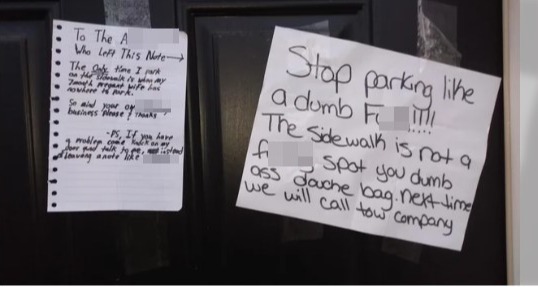 To The A
Who Left This Note→
The Only time I park
on the sidewalk is when my
7month pregnant wife has
nowhere to park.
So mind your ow
business please! Thanks!
-PS, If you have
a problem come knock on my
door and talk to me, instead
leaving a note like
Stop parking like
a dumb F in!!
The sidewalk is not a
f spot you dumb
ass douche bag. next time
we will call tow company